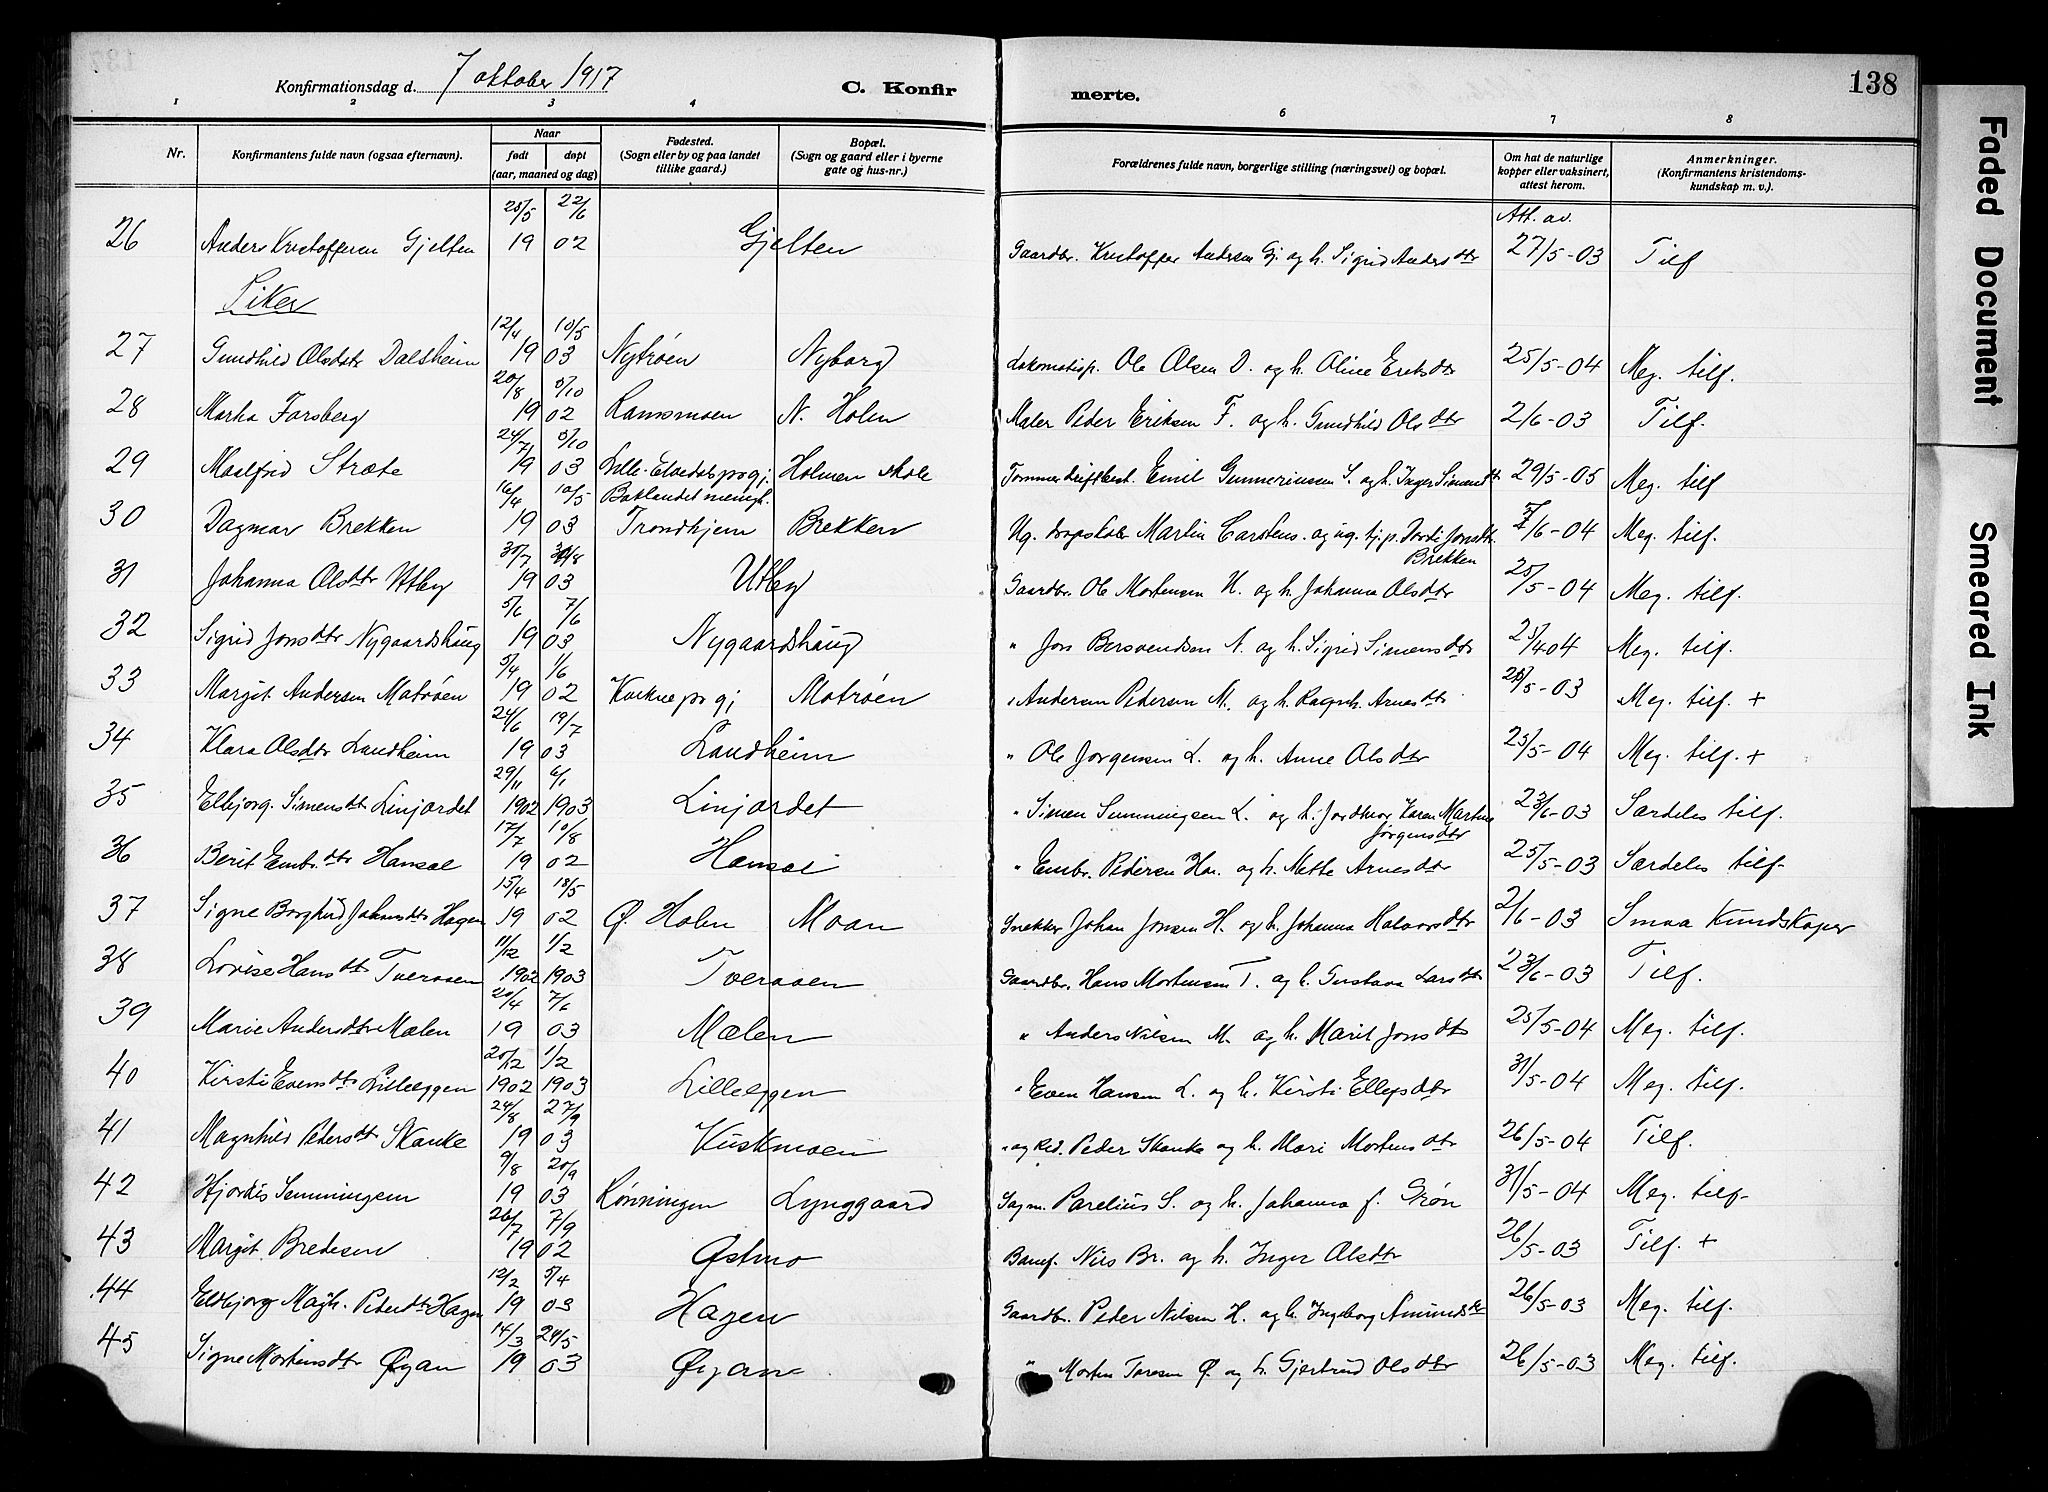 Konfirmationsdag d. 7 oktober 1917
C. Konfir merte.
138
1 2 3 4 6 7 8
Nr.
Konfirmantens fulde navn (ogsaa efternavn).
Naar
født døpt
(aar, maaned og dag)
Fødested.
(Sogn eller by og paa landet
tillike gaard.)
Bopæl.
(Sogn og gaard eller i byerne
gate og hus-nr.)
Forældrenes fulde navn, borgerlige stilling (næringsvei) og bopæl.
Om hat de naturlige
kopper eller vaksinert,
attest herom.
Anmerkninger.
(Konfirmantens kristendoms-
kundskap m. v.).
Att. av.
26 Anders Kristoffersen Gjelten 28/5 22/6 19 02 Gjelten Gaardbr. Kristoffer Andersen Gj. og h. Sigrid Andersdtr 27/5-03 Tilf
Piker
27 Gundhild Olsdatr Dalsheim 12/4 10/5 19 03 Nytrøen Nyborg Lokomotivp. Ole Olsen D. og h. Oline Eriksdtr 25/5-04 Meg. tilf.
28 Marta Forsberg 20/8 5/10 19 02 Ramsmoen N. Holen Maler Peder Eriksen F. og h. Gundhild Olsdtr 2/6-03 Tilf.
29 Maalfrid Stræte 24/7 5/10 19 03 Lille-Elvedals prgj. Holmen skole Tømmerdriftbest. Emil Gunneriusen S. og h. Inger Simensdtr 29/5-05 Meg. tilf
30 Dagmar Brekken 16/4 10/5 19 03 Baklandet menigh. Trondhjem Brekken Ug. dropskler Martin Carstens. og ug. tj.p. Dorte Jonsdtr. Brekken 7/6-04 Meg. tilf.
31 Johanna Olsdtr Utby 30/7 30/8 19 03 Utby Gaardbr. Ole Mortensen U. og h. Johanna Olsdtr 25/5-04 Meg. tilf.
32 Sigrid Jonsdtr Nygaardshaug 5/6 7/6 19 03 Nygaardshaug " Jon Bersvendsen N. og h. Sigrid Simensdtr 25/4 04 Meg. tilf.
33 Margit Andersen Motrøen 5/4 1/6 19 02 Kvikne prgj Motrøen " Andersen Pedersen M. og h. Ragnh. Arnesdtr 28/5-03 Meg. tilf. +
34 Klara Olsdtr Landheim 24/6 19/7 19 03 Landheim " Ole Jørgensen L. og h. Anne Olsdtr 25/5-04 Meg. tilf. +
35 Elbjørg Simensdtr Linjordet 29/11 6/1 1902 1903 Linjordet " Simen Semmingsen L. og h. Jordmor Karen Martine Jørgensdtr 23/6-03 Særdeles tilf.
36 Berit Embr.dtr Hansæl 17/7 10/8 19 02 Hansæl " Embr. Pedersen Han. og h. Mette Arnesdtr 25/5-03 Særdeles tilf.
37 Signe Borghild Johansdtr Hagen 15/4 18/5 19 02 Ø. Holen Moan Snekker Johan Jonsen H. og h. Johanna Halvorsdtr 2/6-03 Smaa Kundskaper
38 Lovise Hansdtr Tveraaen 11/12 1/2 1902 1903 Tveraaen Gaardbr. Hans Mortensen T. og h. Gustava Larsdtr 23/6-03 Tilf.
39 Marie Andersdtr Mælen 20/4 7/6 19 03 Mælen " Anders Nilsen M. og h. Marit Jonsdtr 25/5-04 Meg. tilf.
40 Kirsti Evensdtr Lilleeggen 20/12 1/2 1902 1903 Lilleeggen " Even Hansen L. og h. Kirsti Ellefsdtr 31/5-04 Meg. tilf.
41 Magnhild Pedersdtr Skanke 24/8 27/9 19 03 Kuskmoen " og Red. Peder Skanke og h. Mari Mortensdtr 26/5-04 Tilf.
42 Hjørdis Semmingsen 9/8 20/9 19 03 Rønningen Lynggaard Sagm. Parelius S. og h. Johanna f. Grøn 31/5-04 Meg. tilf.
43 Margit Bredesen 26/7 7/9 19 02 Østmo Banef. Nils Br. og h. Inger Olsdtr 26/5-03 Tilf. +
44 Eldbjørg Magh. Pedersdtr Hagen 12/2 5/4 19 03 Hagen Gaardbr. Peder Nilsen H. og h. Ingeborg Amundsdtr 26/5-03 Meg. tilf.
45 Signe Mortensdtr Øyan 14/3 24/5 19 03 Øyan " Morten Toresen Ø og h. Gjertrud Olsdtr 26/5-03 Meg. tilf.
Faded Document
Smeared Ink